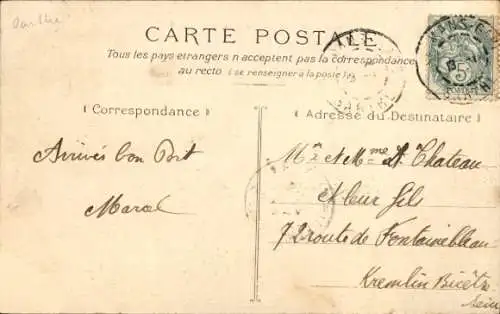 CARTE POSTALE
Tous les pays étrangers n'acceptent pas la correspondance
au recto (se renseigner à la poste)
Correspondance
Adresse du Destinataire
Arrivés bon Port
Marcel
Mr & Mme A. Chateau
& leur fils
72 route de Fontainebleau
Kremlin Bicêtre
Seine
5c
POSTES